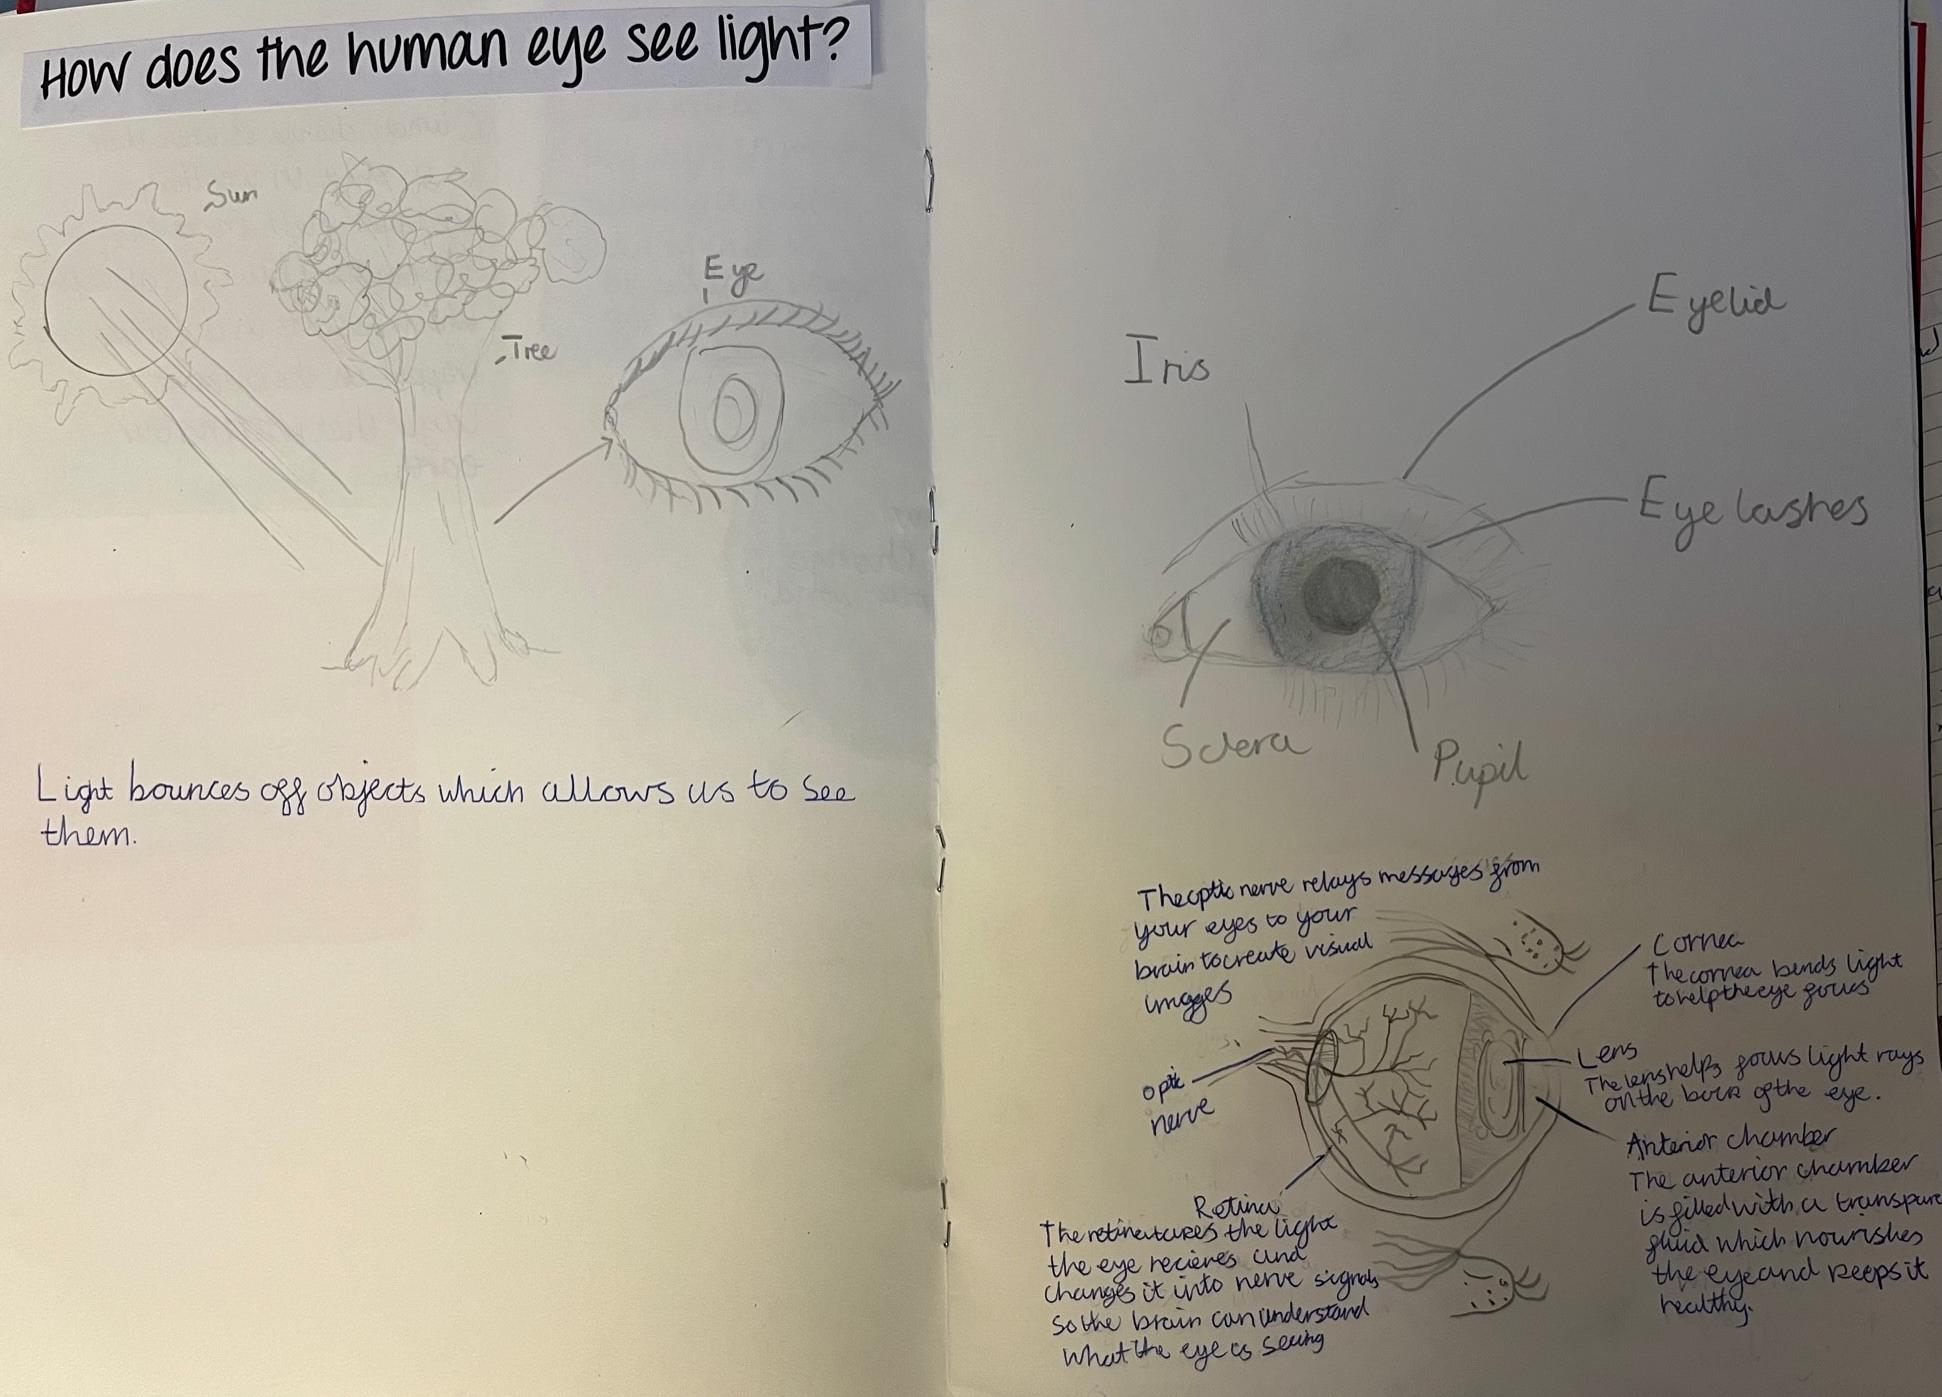 How does the human eye see light?
Sun
Eye
Tree
Light bounces off objects which allows us to see
them.
Eyelid
Iris
Eye lashes
Sclera
Pupil
The optic nerve relays messages from
your eyes to your
brain to create visual
images
optic
nerve
Cornea
The cornea bends light
to help the eye focus
Lens
The lens helps focus light rays
on the back of the eye.
Anterior chamber
The anterior chamber
is filled with a transpare
fluid which nourishes
the eye and keeps it
healthy.
Retina
The retina takes the light
the eye recieves and
changes it into nerve signals
so the brain can understand
what the eye is seeing